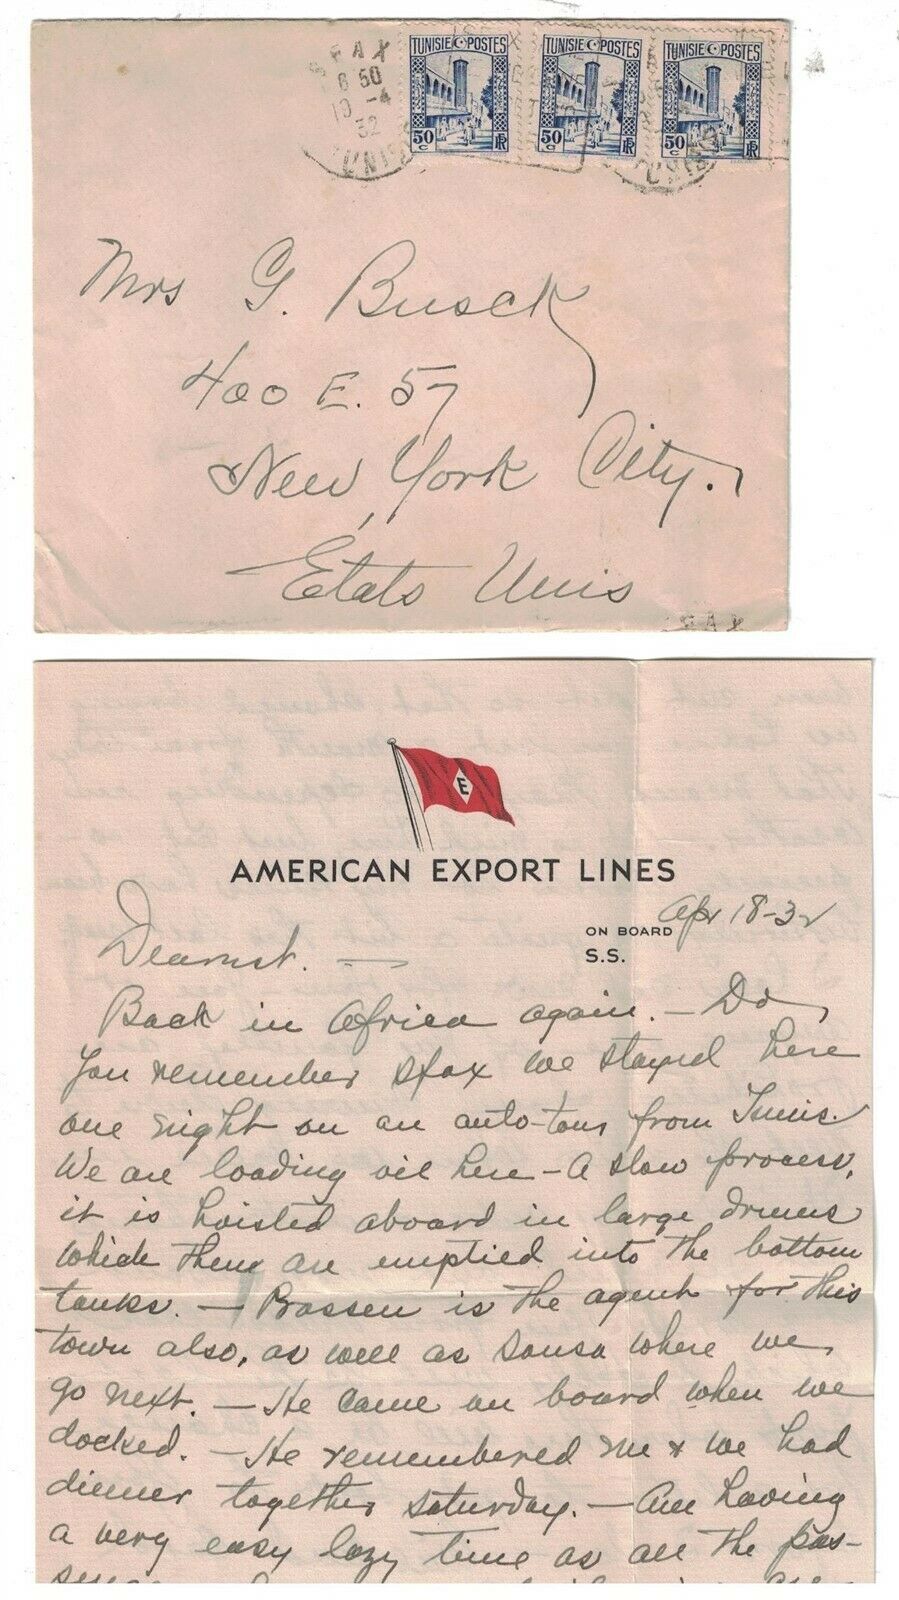 SFAX
6 50
19 -4
32
TUNISIE
TUNISIE POSTES
50 c
RF
TUNISIE POSTES
50 c
RF
TUNISIE POSTES
50 c
RF
Mrs G. Busck
400 E. 57
New York City.
États Unis
E
AMERICAN EXPORT LINES
ON BOARD Apr 18-32
S.S.
Dearest. —
Back in Africa again. — Do
you remember Sfax we stayed here
one night on an auto-tour from Tunis.
We are loading oil here — A slow process,
it is hoisted aboard in large drums
which then are emptied into the bottom
tanks. — Brossen is the agent for this
town also, as well as Sousa where we
go next. — He came on board when we
docked. — He remembered me & we had
dinner together Saturday. — Am having
a very easy lazy time as all the pas-